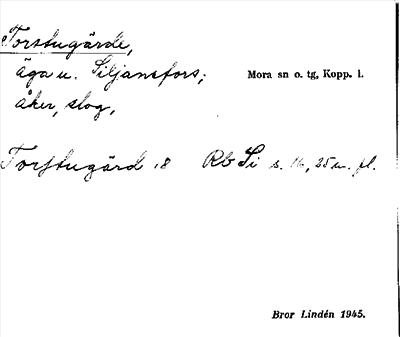 Torstugärde,
äga u. Siljansfors; Mora sn o. tg, Kopp. l.
åker, slog,
Torstugärd 18 Rb Si s. 16, 25 m. fl.
Bror Lindén 1945.